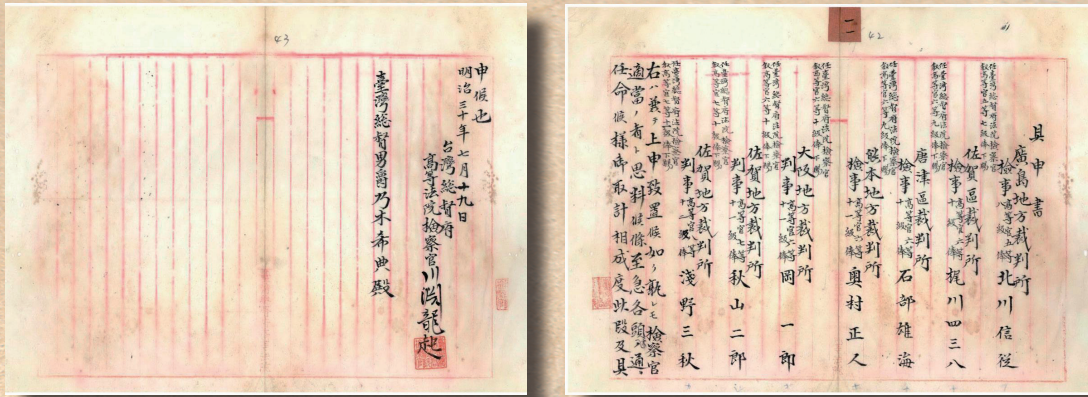 一一
42
具申書
廣島地方裁判所
檢事 高等官五等 北川信從
任臺灣總督府法院檢察官
敍高等官五等七級俸下賜
佐賀區裁判所
檢事 高等官六等 十一級俸 梶川四三八
任臺灣總督府法院檢察官
敍高等官六等九級俸下賜
唐津區裁判所
檢事 高等官六等 十一級俸 石部雄海
任臺灣總督府法院檢察官
敍高等官六等九級俸下賜
熊本地方裁判所
檢事 高等官六等 十一級俸 奧村正人
任臺灣總督府法院檢察官
敍高等官六等十級俸下賜
大阪地方裁判所
判事 高等官六等 十一級俸 岡一郎
任臺灣總督府法院檢察官
敍高等官六等十級俸下賜
佐賀地方裁判所
判事 高等官七等 十一級俸 秋山二郎
任臺灣總督府法院檢察官
敍高等官七等十級俸下賜
佐賀地方裁判所
判事 高等官七等 十一級俸 淺野三秋
任臺灣總督府法院檢察官
敍高等官七等十一級俸下賜
右ハ兼テ上申致置候如ク孰レモ檢察官
適當ノ者ト思料候條至急各頭書ノ通
任命候樣御取計相成度此段及具
43
申候也
明治三十年七月十九日
台灣總督府
高等法院檢察官川淵龍起
臺灣總督男爵乃木希典殿